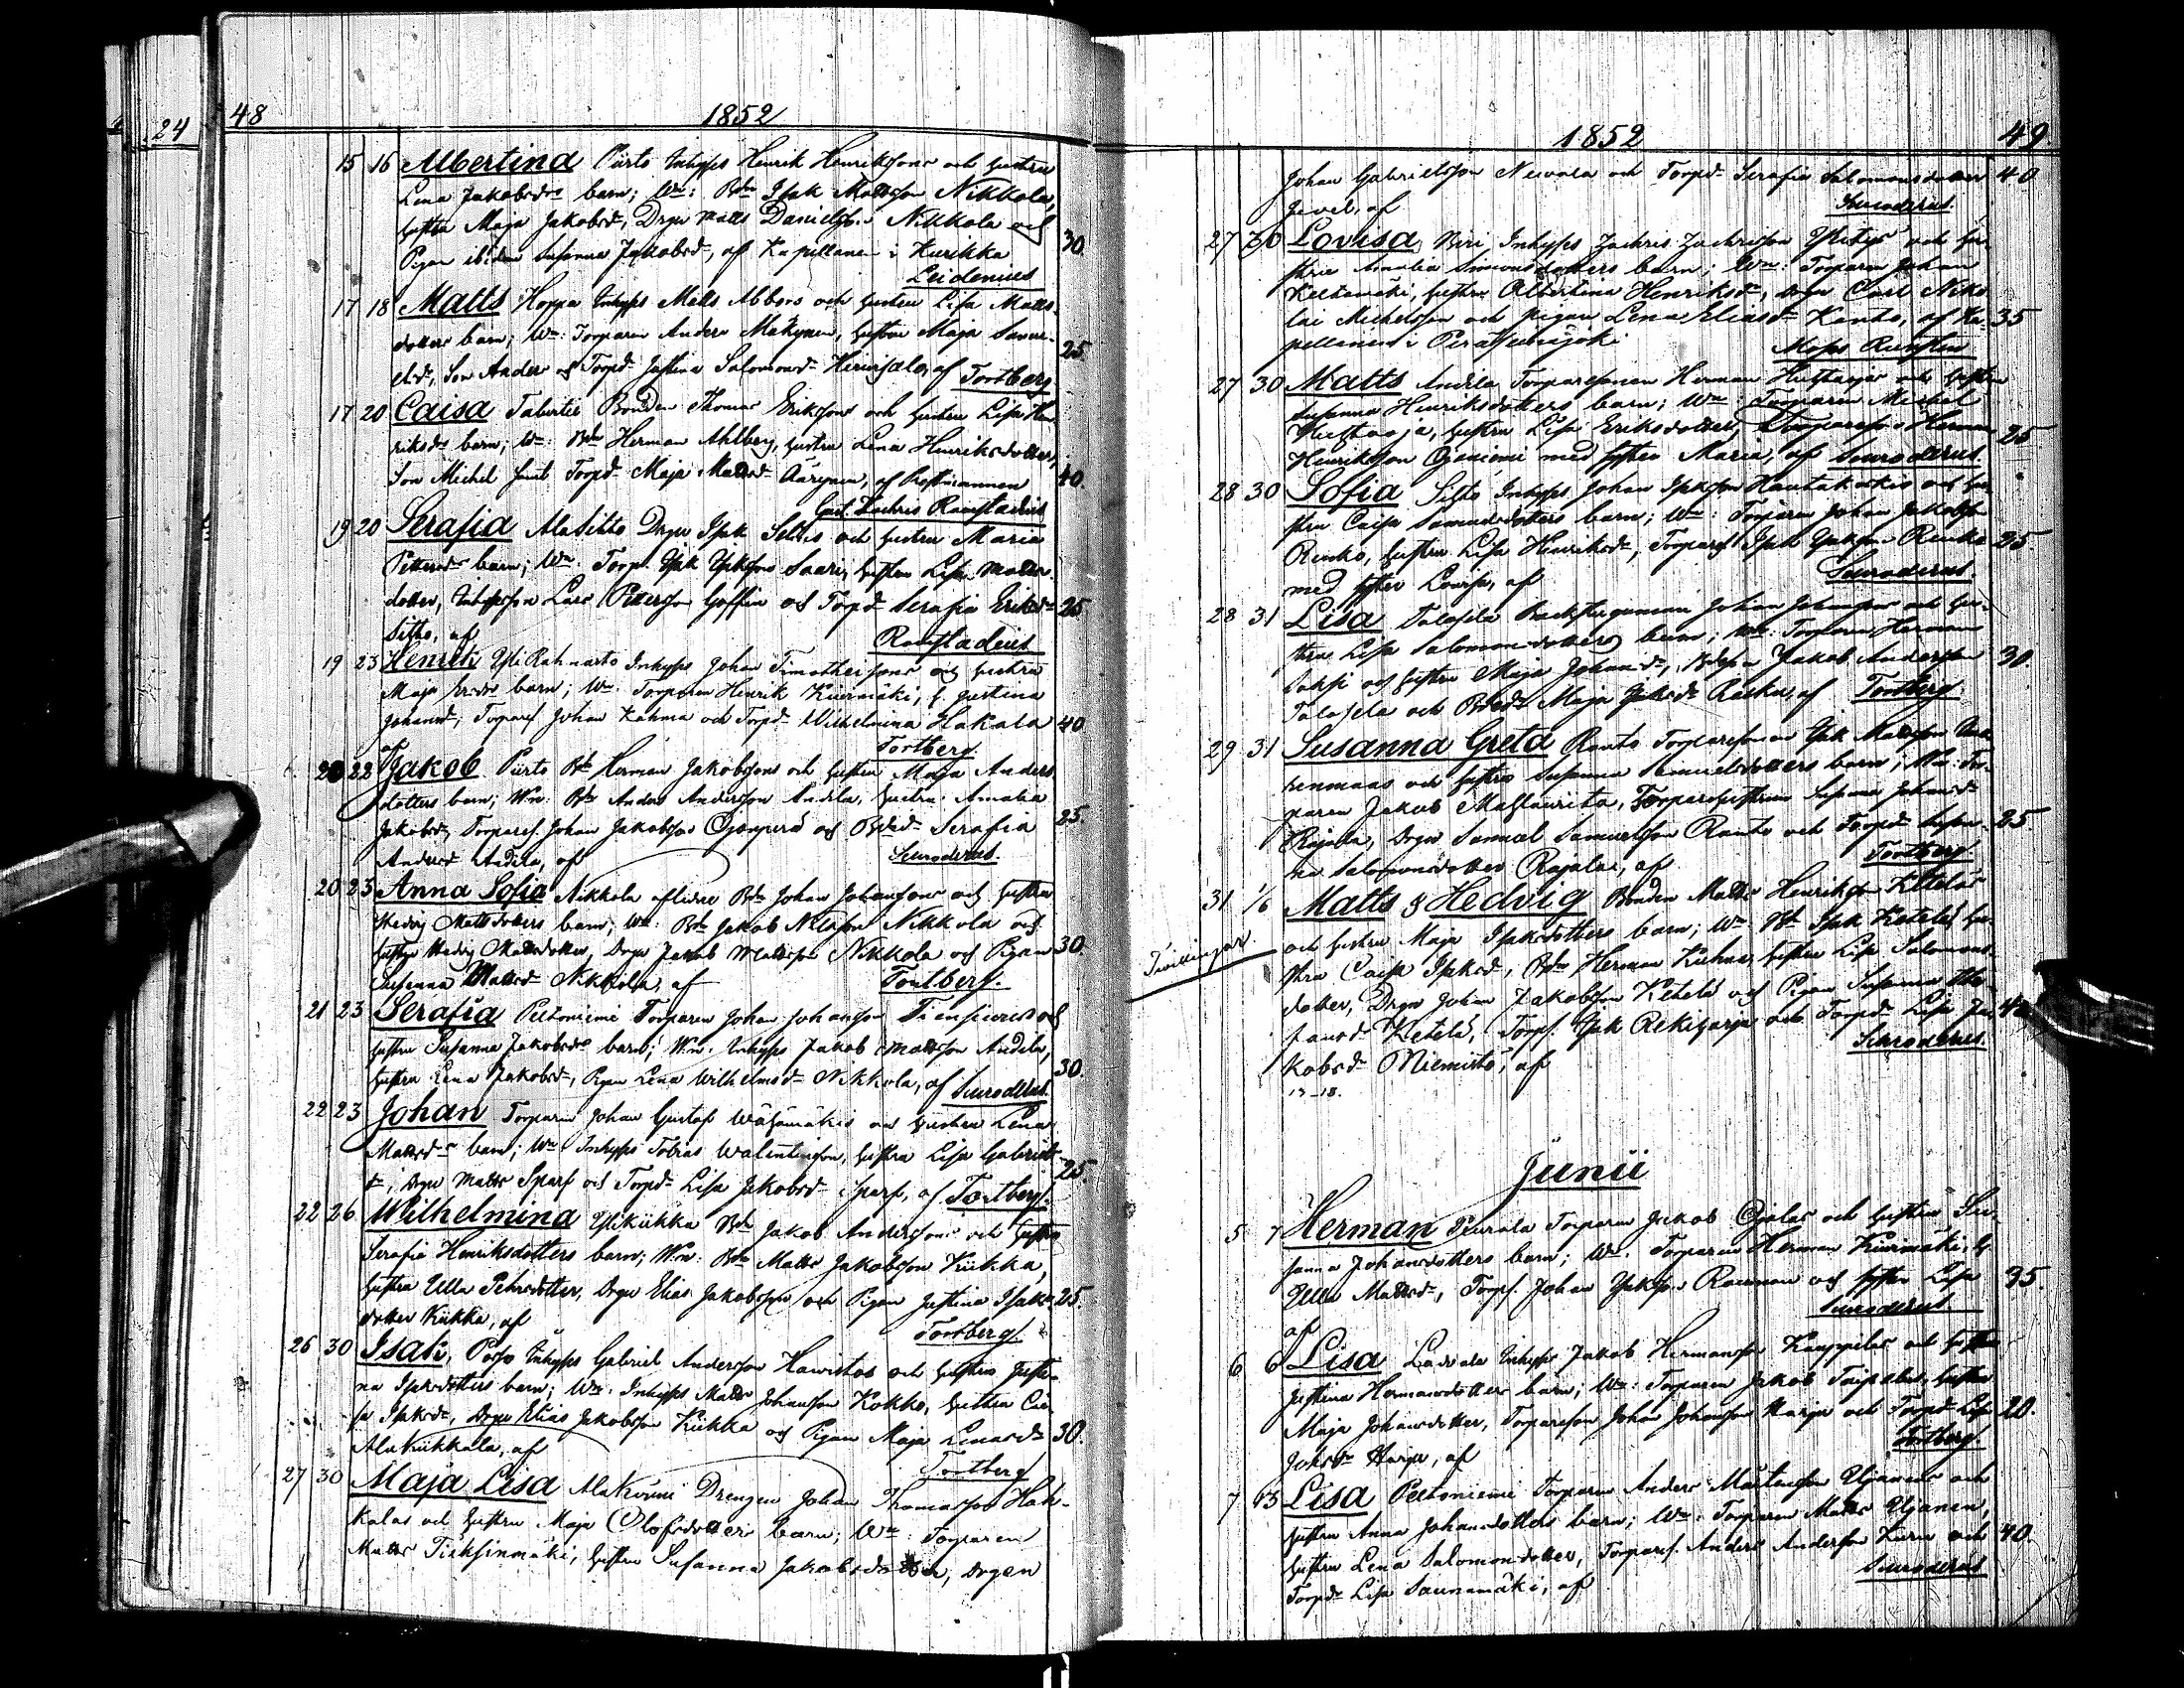 24
48
1852
15 16 Albertina Piirto Inhyses Henrik Henrikssons och hustrun
Lena Jakobsdrs barn; Wn: Bdn Isak Mattsson Nikkola,
hustru Maja Jakobsd, Drgn Matts Danielss. Nikkola och 30.
Pigan ibidem Susanna Jakobsd, af Kapellanen i Kurikka
Leidenius
17 18 Matts Hoppa Inhyses Matts Abbors och hustrun Lisa Matts
dotters barn; Wn: Torparen Anders Mäkynen, hustrun Maja Samu- 25.
elsd, Son Anders och Torpd Justina Salomonsd Heinisalo, af Tortberg
17 20 Caisa Talvitie Bonden Thomas Erikssons och hustrun Lisa Hen
riksdrs barn; Wn: Bdn Herman Ahlberg, hustru Lena Henriksdotter,
Son Michel samt Torpd Maja Mattsd Äärynen, af Prostmannen 40.
Gust. Zachris Ramstadius
19 20 Serafia AlaSihto Drgn Isak Seltis och hustrun Maria
Pettersdrs barn; Wn: Torp. Isak Isakssons Saari, hustrun Lisa Matts
dotter, Inhysesson Lars Petterson Goffin och Torpd Serafia Eriksd 25.
Sihto, af Ramstadius
19 23 Henrik YliRahnasto Inhyses Johan Timotheissons och hustru
Maja barn; Wn: Torparen Henrik Kurmäki, h. Justina
Johansd, Torpares. Johan Kahma och Torpd Wilhelmina Hakala 40
af Tortberg
20 22 Jakob Piirto Bdn Herman Jakobssons och hustrun Maja Anders
dotters barn; Wn: Bdn Anders Andersson Andila, hustru Amalia
Jakobsd, Torpares. Johan Jakobsson Ojanperä och Bdsd Serafia 25.
Andersd Andila, af Suroderus.
20 23 Anna Sofia Nikkola aflidne Bdn Johan Johanssons och hustrun
Hedvig Mattsdotters barn; Wn: Bdn Jakob Nilsson Nikkola och
hustru Hedvig Mattsdotter, Drgn Jakob Mattsson Nikkola och Pigan 30.
Susanna Mattsd Nikkola, af Tortberg.
21 23 Serafia Peltoniemi Torparen Johan Johansson Tiensuus och
hustru Susanna Jakobsdrs barn; Wn: Inhyses Jakob Mattsson Andila,
hustru Lena Jakobsd, Pigan Lena Wilhelmsd Nikkola, af Suroderus. 30.
22 23 Johan Torparen Johan Gustaf Wäisämäkis och hustrun Lena
Mattsdrs barn; Wn: Inhyses Tobias Walentinson, hustru Lisa Gabriels
dr, Drgn Matts Sparf och Torpd Lisa Jakobsd Sparf, af Tortberg. 25.
22 26 Wilhelmina YliKiikka Bdn Jakob Anderssons och hustrun
Serafia Henriksdotters barn; Wn: Bdn Matts Jakobsson Kiikka,
hustru Ulla Petersdotter, Drgn Elias Jakobsson och Pigan Justina Isaks 25.
dotter Kiikka, af Tortberg
26 30 Isak, Posso Inhyses Gabriel Andersson Hawistos och hustrun Justi-
na Isaksdotters barn; Wn: Inhyses Matts Johansson Kokko, hustru Cai-
sa Isaksd, Drgn Elias Jakobsson Kiikka och Pigan Maja Lenasd 30.
AlaKiikkala, af Tortberg
27 30 Maja Lisa AlaKoivu Drengen Johan Thomasson Hak-
kolas och hustrun Maja Olofsdotters barn; Wn: Torparen
Matts Tiiksinmäki, hustru Susanna Jakobsdotter, Drgen
1852
49.
Johan Gabrielsson Newala och Torpd Serafia Salomonsdotter 40
Jevel, af Suroderus
27 30 Lovisa, Viri Inhyses Zachris Zachrisson Yrityz och hu-
strun Amalia Simonsdotters barn; Wn: Torparen Johan
Keltamäki, hustru Albertina Henriksd, Drgn Carl Niko
lai Michelsson och pigan Lena Eliasd Kanto, af Ka- 35
pellanen i Peräseinäjoki Mosis Rensten
27 30 Matts Andila Torparesonen Herman Huhtaojas och hustrun
Susanna Henriksdotters barn; Wn: Torparen Michel
Huhtaoja, hustru Lisa Eriksdotter, Torpares. Herman 25
Henriksson Ojaniemi med hustru Maria, af Suroderus.
28 30 Sofia Sihto Inhyses Johan Isaksson Hautakoskis och hu-
strun Caisa Samuelsdotters barn; Wn: Torparen Johan Jakobsson
Renko, hustru Lisa Henriksd, Torpares. Isak Isaksson Renko 25.
med hustru Lovisa, af Suroderus.
28 31 Lisa Talasla Backstugumannen Johan Johanssons och hu-
strun Lisa Salomonsdotters barn; Wn: Torparen Herman
Saksi och hustru Maja Johansd, Bdson Jakob Andersson 30
Talasla och Bdsd Maja Jakobsd Raska, af Tortberg
29 31 Susanna Greta Ranto Torparesonen Isak Mattsson
henmaas och hustru Susanna Samuelsdotters barn; Wn: Tor-
paren Jakob Mahlaurita, Torparehustrun Susanna Johansd
Rajala, Drgn Samuel Samuelsson Ranto och Torpd Susan- 25.
na Salomonsdotter Rajala, af Tortberg
31 1/6 Matts & Hedvig Bonden Matts Henriksson Ketelas
Tvillingar.
och hustrun Maja Isaksdotters barn; Wn: Bdn Isak Ketelä, hu-
stru Caisa Isaksd, Bdn Herman Kuhna, hustru Lisa Salomons-
dotter, Drgn Johan Jakobsson Ketelä och Pigan Susanna
Ketelä, Torps. Isak Rekiharju och Torpd Lisa Ja- 40
kobsd Niemistö, af Suroderus.
17-18.
Junii
5 7 Herman Peurala Torparen Jakob Ojalas och hustrun Su-
sanna Johansdotters barn; Wn: Torparen Herman Kuirimäki, h
Ulla Mattsd, Torps. Johan Isakss. Rauman och hustru Lisa 35.
af Suroderus.
6 6 Lisa Ladvala Inhyses Jakob Hermansson Kauppilas och hustrun
Justina Hermansdotters barn; Wn: Torparen Jakob Taipalus, hustru
Maja Johansdotter, Torpareson Johan Johansson Harju och Torpd Lisa 20.
Johsdr Harju, af Tortberg
7 13 Lisa Peltoniemi Torparen Anders Mårtensson Ujainens och
hustru Anna Johansdotters barn; Wn: Torparen Matts Ujanen,
hustru Lena Salomonsdotter, Torpares. Anders Andersson Kuru och 40.
Torpd Lisa Saunamäki, af Suroderus